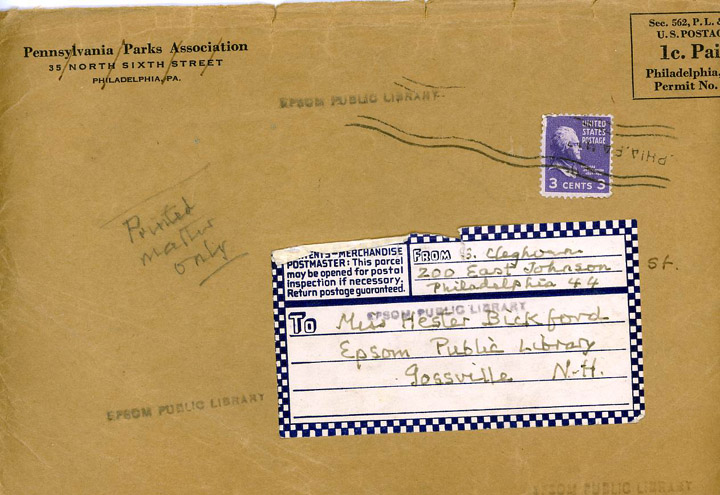 Pennsylvania Parks Association
35 NORTH SIXTH STREET
PHILADELPHIA, PA.
Sec. 562, P. L. &
U.S. POSTAG
1c. Pai
Philadelphia,
Permit No.
EPSOM PUBLIC LIBRARY.
UNITED
STATES
POSTAGE
3 CENTS 3
PHILA. PA.
Printed
matter
only
CONTENTS-MERCHANDISE
POSTMASTER: This parcel
may be opened for postal
inspection if necessary.
Return postage guaranteed.
FROM G. Cleghorn
200 East Johnson St.
Philadelphia 44
EPSOM PUBLIC LIBRARY
To Miss Hester Bickford
Epsom Public Library
Gossville N-H.
EPSOM PUBLIC LIBRARY
EPSOM PUBLIC LIBRARY